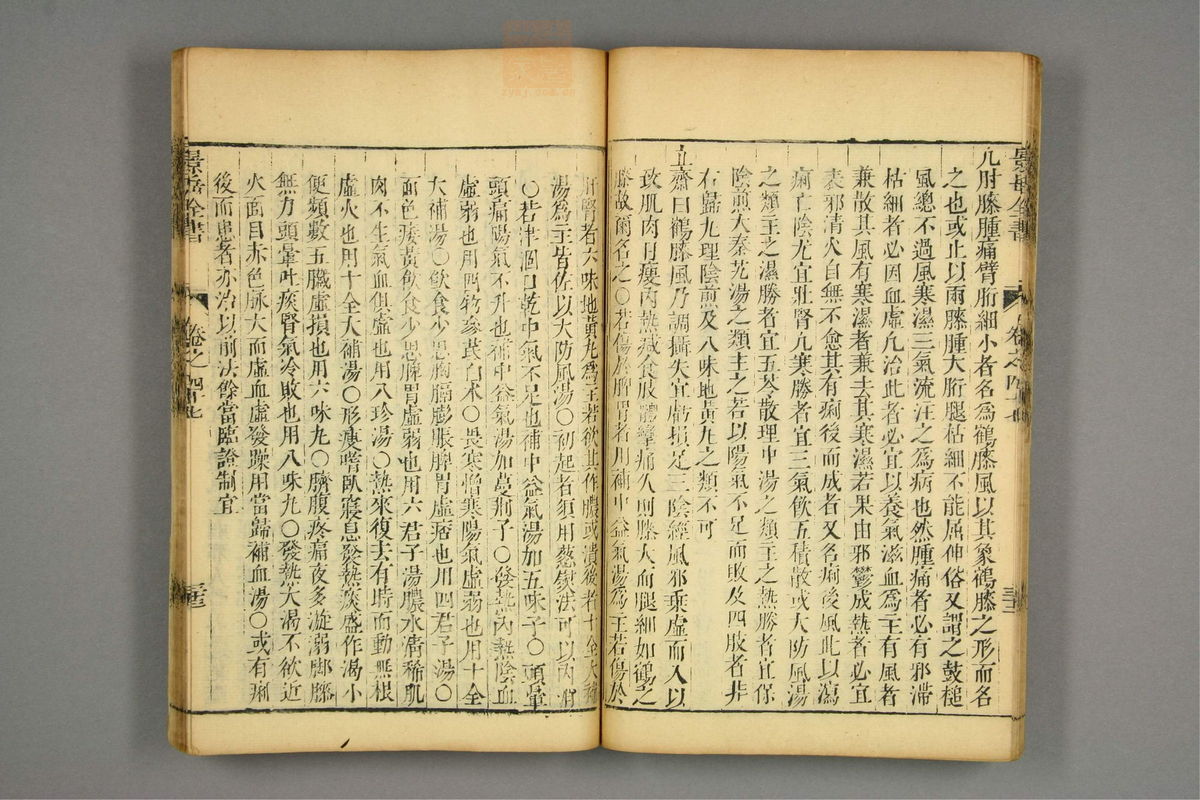 凡肘膝腫痛臂胻細小者名為鶴膝風以其象鶴膝之形而名
之也或止以兩膝腫大胻腿枯細不能屈伸俗又謂之鼓槌
風總不過風寒濕三氣流注之為病也然腫痛者必有邪滯
枯細者必因血虛凡治此者必宜以養氣滋血為主有風者
兼散其風有寒濕者兼去其寒濕若果由邪鬱成熱者必宜
表邪清火自無不愈其有痢後而成者又名痢後風此以瀉
痢亡陰尤宜壯腎凡寒勝者宜三氣飲五積散或大防風湯
之類主之濕勝者宜五苓散理中湯之類主之熱勝者宜保
陰煎大秦艽湯之類主之若以陽氣不足而敗及四肢者非
右歸丸理陰煎及八味地黃丸之類不可
立齋曰鶴膝風乃調攝失宜虧損足三陰經風邪乘虛而入以
致肌肉日瘦內熱減食肢體攣痛久則膝大而腿細如鶴之
膝故爾名之○若傷於脾胃者用補中益氣湯為主若傷於
肝腎者六味地黃丸為主若欲其作膿或潰後者十全大補
湯為主皆佐以大防風湯○初起者須用葱熨法可以內消
○若津涸口乾中氣不足也補中益氣湯加五味子○頭暈
頭痛陽氣不升也補中益氣湯加蔓荊子○發熱內熱陰血
虛弱也用四物參芪白朮○畏寒憎寒陽氣虛弱也用十全
大補湯○飲食少思胸膈膨脹脾胃虛痞也用四君子湯○
面色痿黃飲食少思脾胃虛弱也用六君子湯膿水清稀肌
肉不生氣血俱虛也用八珍湯○熱來復去有時而動無根
虛火也用十全大補湯○形瘦嗜臥寢息發熱痰盛作渴小
便頻數五臟虛損也用六味丸○臍腹疼痛夜多漩溺脚膝
無力頭暈吐痰腎氣冷敗也用八味丸○發熱大渴不欲近
火面目赤色脉大而虛血虛發躁用當歸補血湯○或有痢
後而患者亦治以前法餘當臨證制宜
景岳全書
卷之四十七
景岳全書
卷之四十七